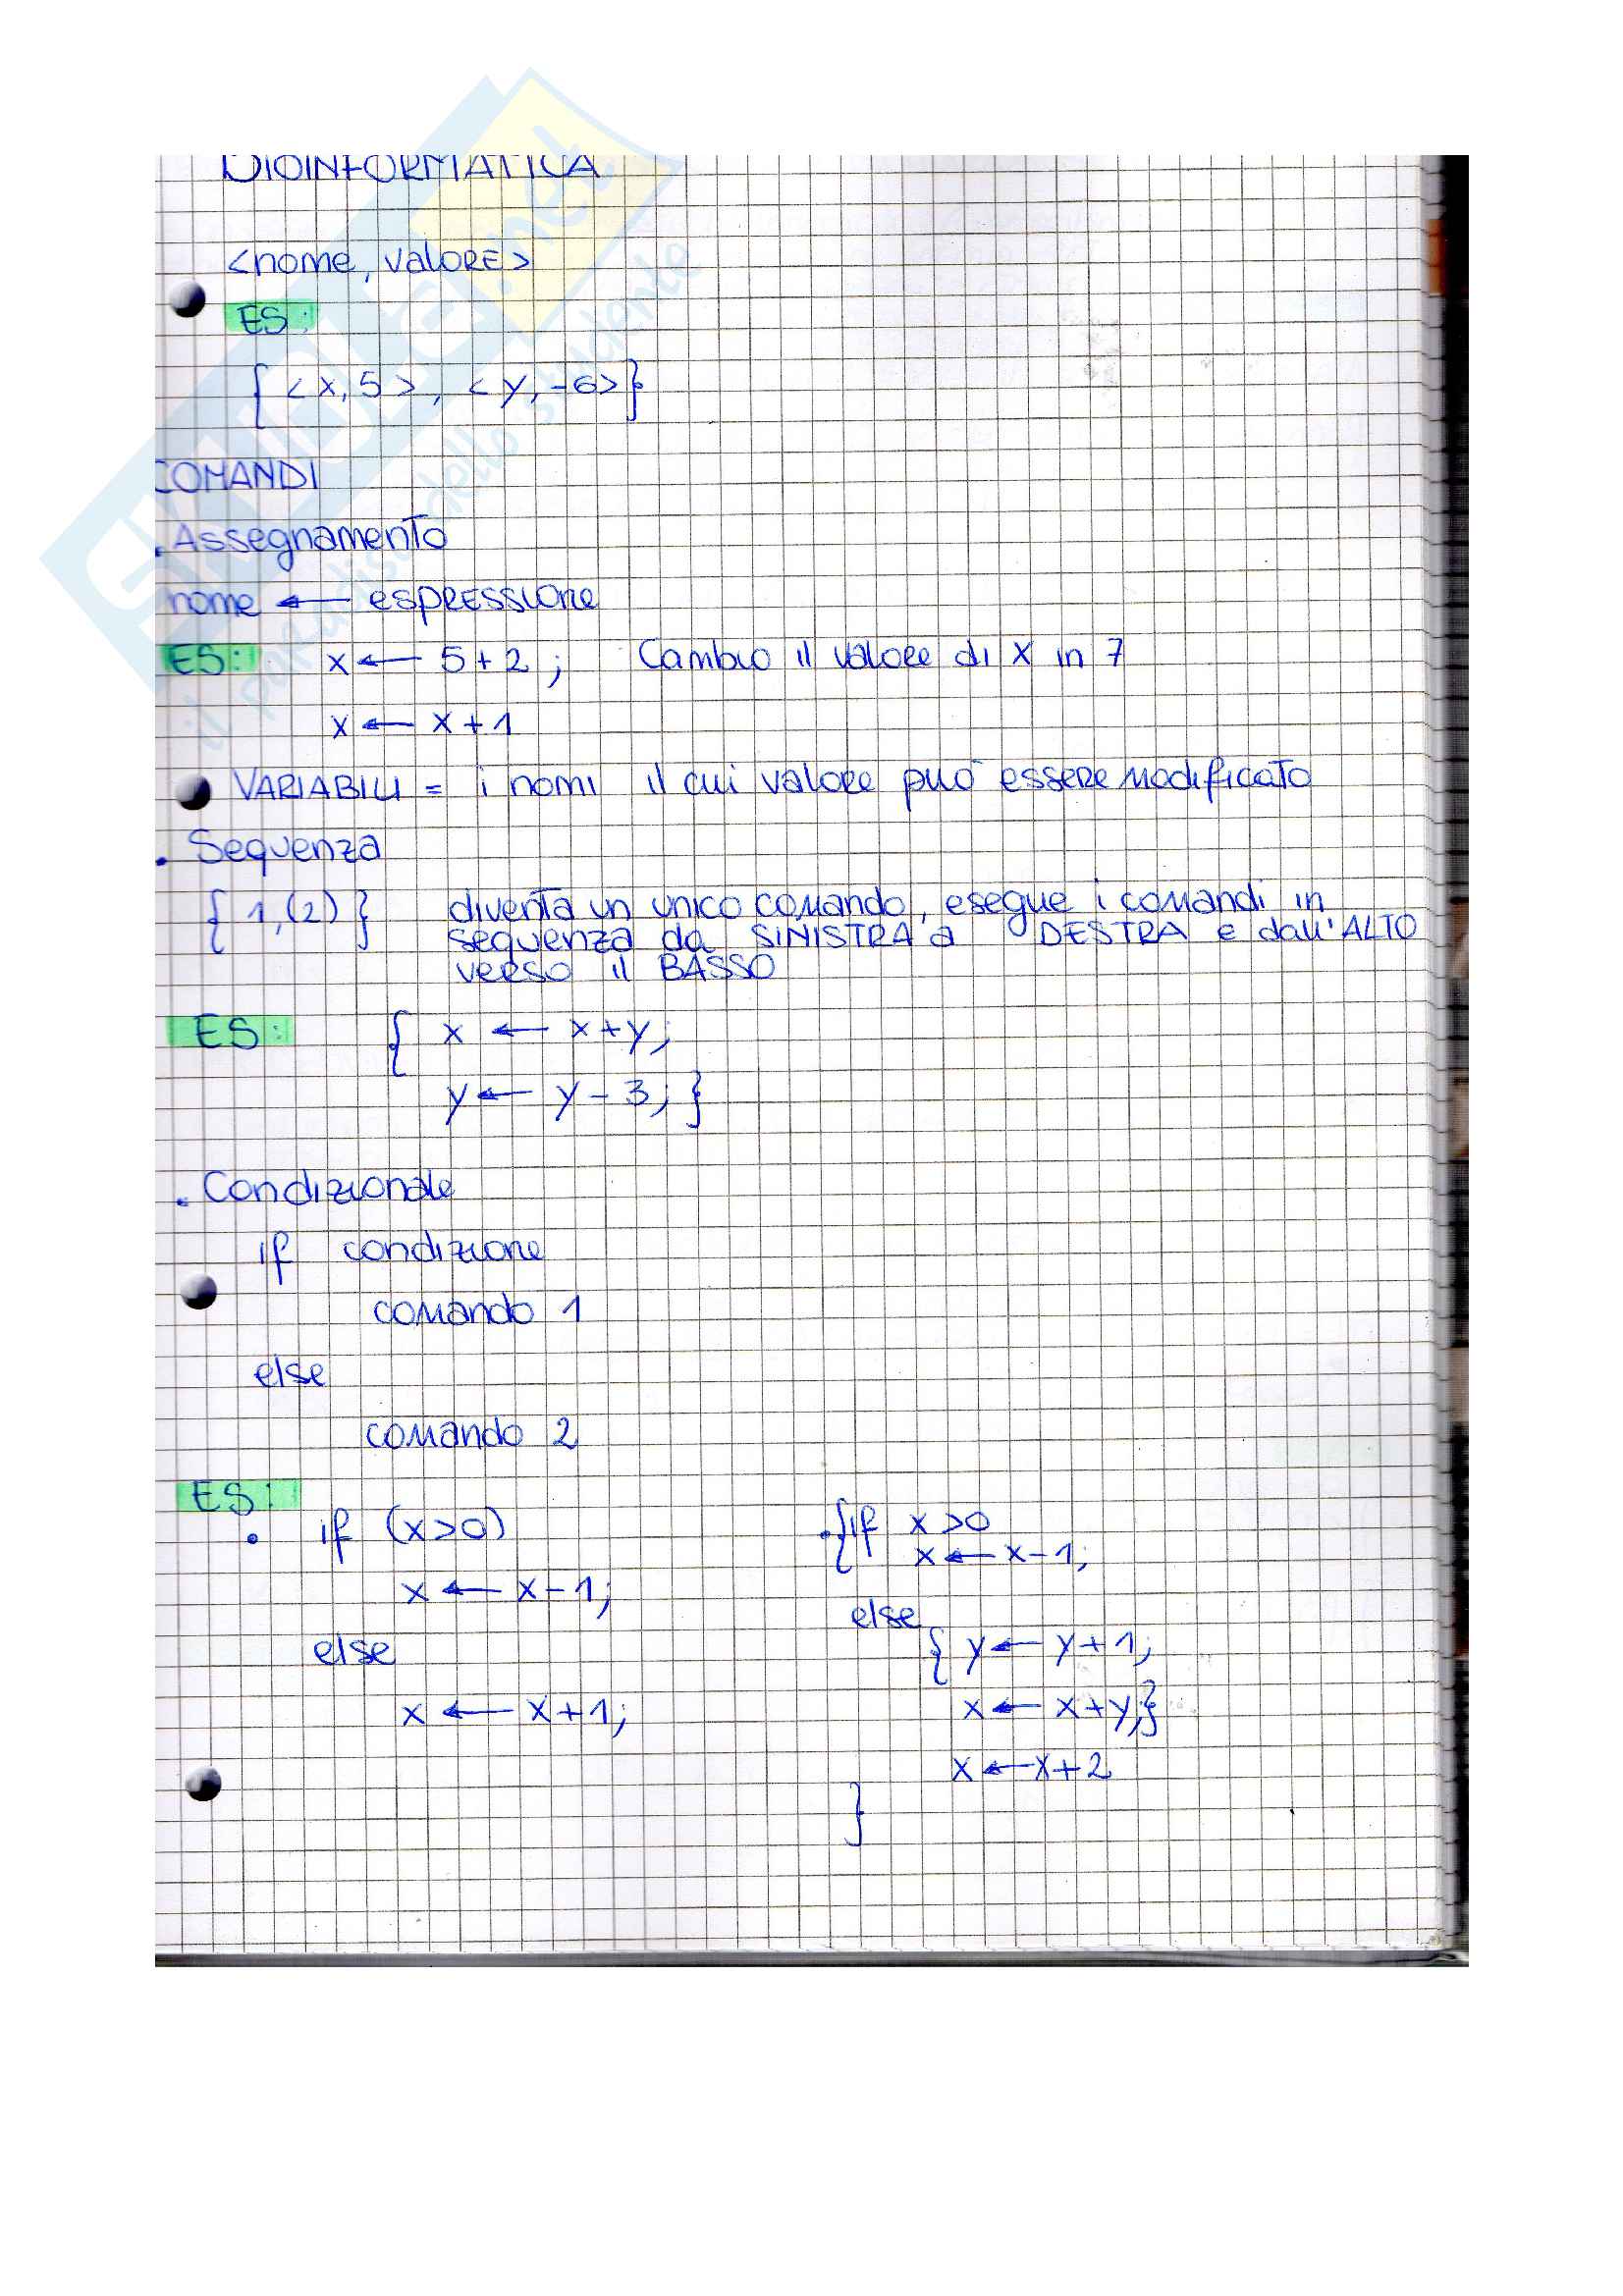 BIOINFORMATICA
<nome, valore>
ES:
{ <x, 5>, <y, -6>}
COMANDI
. Assegnamento
nome ← espressione
ES: x ← 5+2; Cambio il valore di x in 7
x ← x+1
VARIABILI = i nomi il cui valore può essere modificato
. Sequenza
{ 1, (2) } diventa un unico comando, esegue i comandi in
sequenza da SINISTRA a DESTRA e dall'ALTO
verso il BASSO
ES: { x ← x+y;
y ← y-3; }
. Condizionale
if condizione
comando 1
else
comando 2
ES:
. if (x>0)
x ← x-1;
else
x ← x+1;
. { if x>0
x ← x-1;
else
{ y ← y+1;
x ← x+y;}
x ← x+2
}
il paradiso dello studente